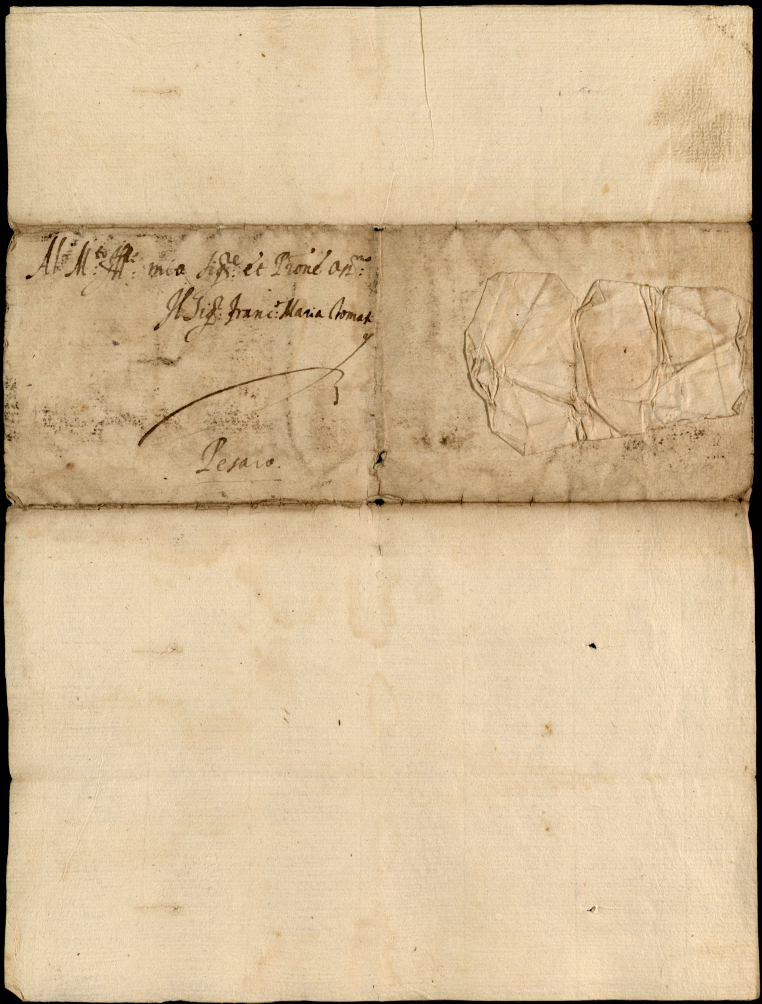 Al M.to Ill.re mio Sig.re et Prone oss.mo
Il Sig.r Franc.o Maria
Pesaro.